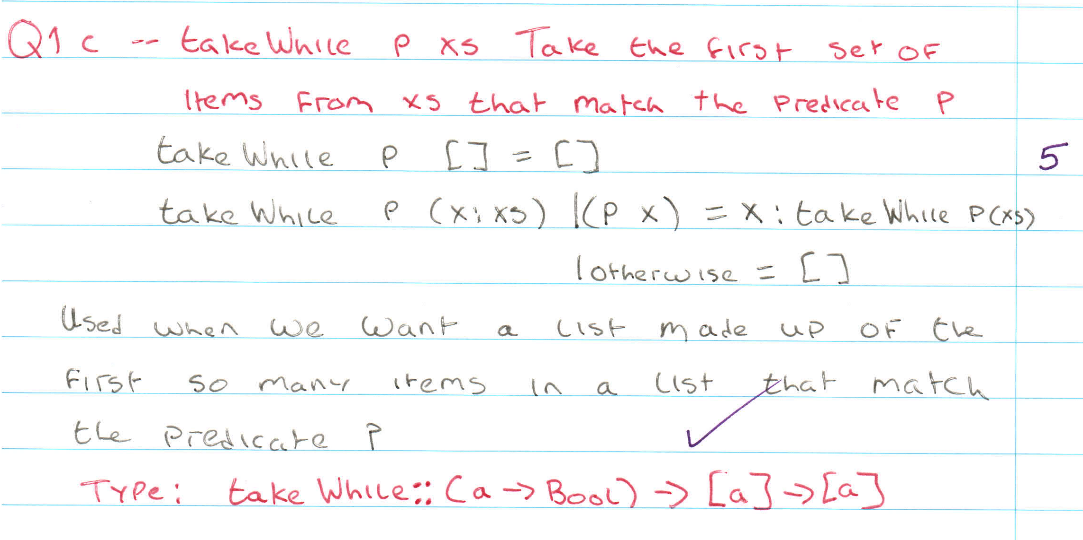 Q1 c -- takeWhile p xs Take the first set of
items from xs that match the predicate p
takeWhile p [] = [] 5
takeWhile p (x:xs) |(p x) = x : takeWhile p(xs)
|otherwise = []
Used when we want a list made up of the
first so many items in a list that match
the predicate p
Type: takeWhile:: (a -> Bool) -> [a] -> [a]